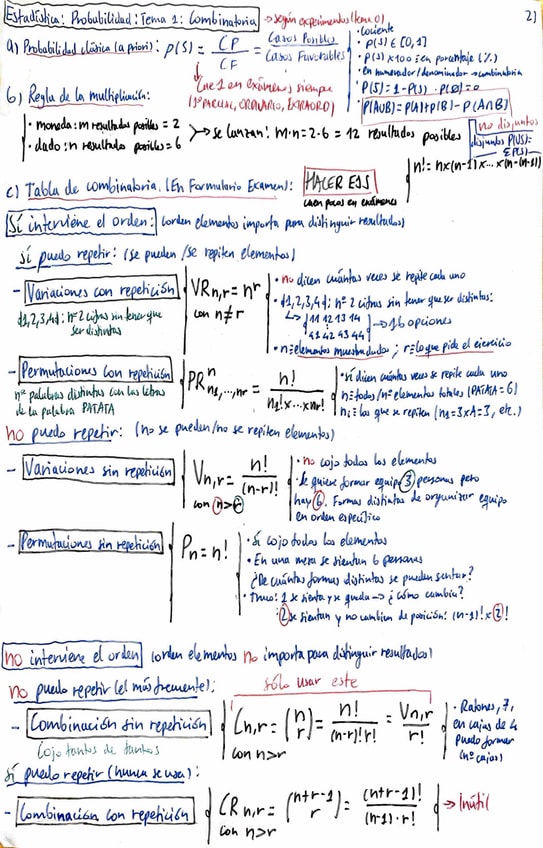 Estadística: Probabilidad: Tema 1: Combinatoria → según experimentos (tema 0)
2)
a) Probabilidad clásica (a priori): p(S) = CP / CF = Casos Posibles / Casos Favorables
· cociente
· p(S) ∈ [0,1]
· p(S) x 100 = en porcentaje (%)
· En numerador/denominador → combinatoria
· P(S) = 1 - P(S̄) · P(∅) = 0
· P(A∪B) = P(A) + P(B) - P(A∩B)
Cae 1 en exámenes siempre
(1º PARCIAL, ORDINARIO, EXTRAORD)
no disjuntos
disjuntos P(US) =
ΣP(S)
b) Regla de la multiplicación:
· moneda: m resultados posibles = 2
· dado: n resultados posibles = 6
→ se lanzan: m·n = 2·6 = 12 resultados posibles
c) Tabla de combinatoria. (En Formulario Examen): HACER EJS
caen pocos en exámenes
n! = n x (n-1) x ... x (n-(n-1))
Sí interviene el orden: (orden elementos importa para distinguir resultados)
Sí puedo repetir: (se pueden/se repiten elementos)
- Variaciones con repetición
{1,2,3,4}; nº 2 cifras sin tener que
ser distintas
VR n,r = n^r
con n ≠ r
· no dicen cuántas veces se repite cada uno
· {1,2,3,4}; nº 2 cifras sin tener que ser distintos:
11 12 13 14
41 42 43 44
→ 16 opciones
· n = elementos muestra/dados; r = lo que pide el ejercicio
- Permutaciones con repetición
nº palabras distintas con las letras
de la palabra PATATA
PR^n n1,...,nr = n! / n1! x ... x nr!
· sí dicen cuántas veces se repite cada uno
n = todos/nº elementos totales (PATATA = 6)
ni = los que se repiten (n1 = 3 x A = 3, etc.)
no puedo repetir: (no se pueden/no se repiten elementos)
- Variaciones sin repetición
V n,r = n! / (n-r)!
con n > r
· no cojo todos los elementos
· Se quiere formar equipo 3 personas pero
hay 6. Formas distintas de organizar equipo
en orden específico
- Permutaciones sin repetición
Pn = n!
· Sí cojo todos los elementos
· En una mesa se sientan 6 personas
¿De cuántas formas distintas se pueden sentar?
· Truco: 1 se sienta y se queda → ¿cómo cambia?
2 se sientan y no cambien de posición: (n-1)! x 2!
no interviene el orden (orden elementos no importa para distinguir resultados)
no puedo repetir (el más frecuente):
sólo usar este
- Combinación sin repetición
Cojo tantos de tantos
C n,r = (n r) = n! / (n-r)! r! = V n,r / r!
con n > r
· Ratones, 7,
en cajas de 4
puedo formar
(nº cajas)
sí puedo repetir (nunca se usa):
- Combinación con repetición
CR n,r = (n+r-1 r) = (n+r-1)! / (n-1)! · r!
con n > r
→ Inútil